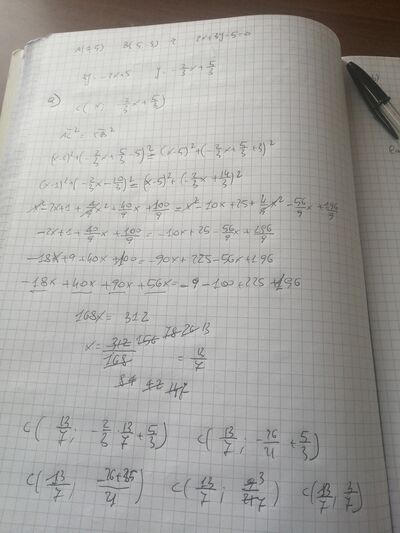 A(1;5) B(5;-3) r 2x+3y-5=0
3y=-2x+5 y=-2/3x+5/3
a) C(x; -2/3x+5/3)
AC²=CB²
(x-1)²+(-2/3x+5/3-5)²=(x-5)²+(-2/3x+5/3+3)²
(x-1)²+(-2/3x-10/3)²=(x-5)²+(-2/3x+14/3)²
x²-2x+1+4/9x²+40/9x+100/9=x²-10x+25+4/9x²-56/9x+196/9
-2x+1+40/9x+100/9=-10x+25-56/9x+196/9
-18x+9+40x+100=-90x+225-56x+196
-18x+40x+90x+56x=-9-100+225+196
168x=312
x=312 156 78 26 13
168 =13/7
84 42 14 7
C(13/7; -2/3·13/7+5/3) C(13/7; -26/21+5/3)
C(13/7; -26+35/21) C(13/7; 9 3/21 7) C(13/7; 3/7)